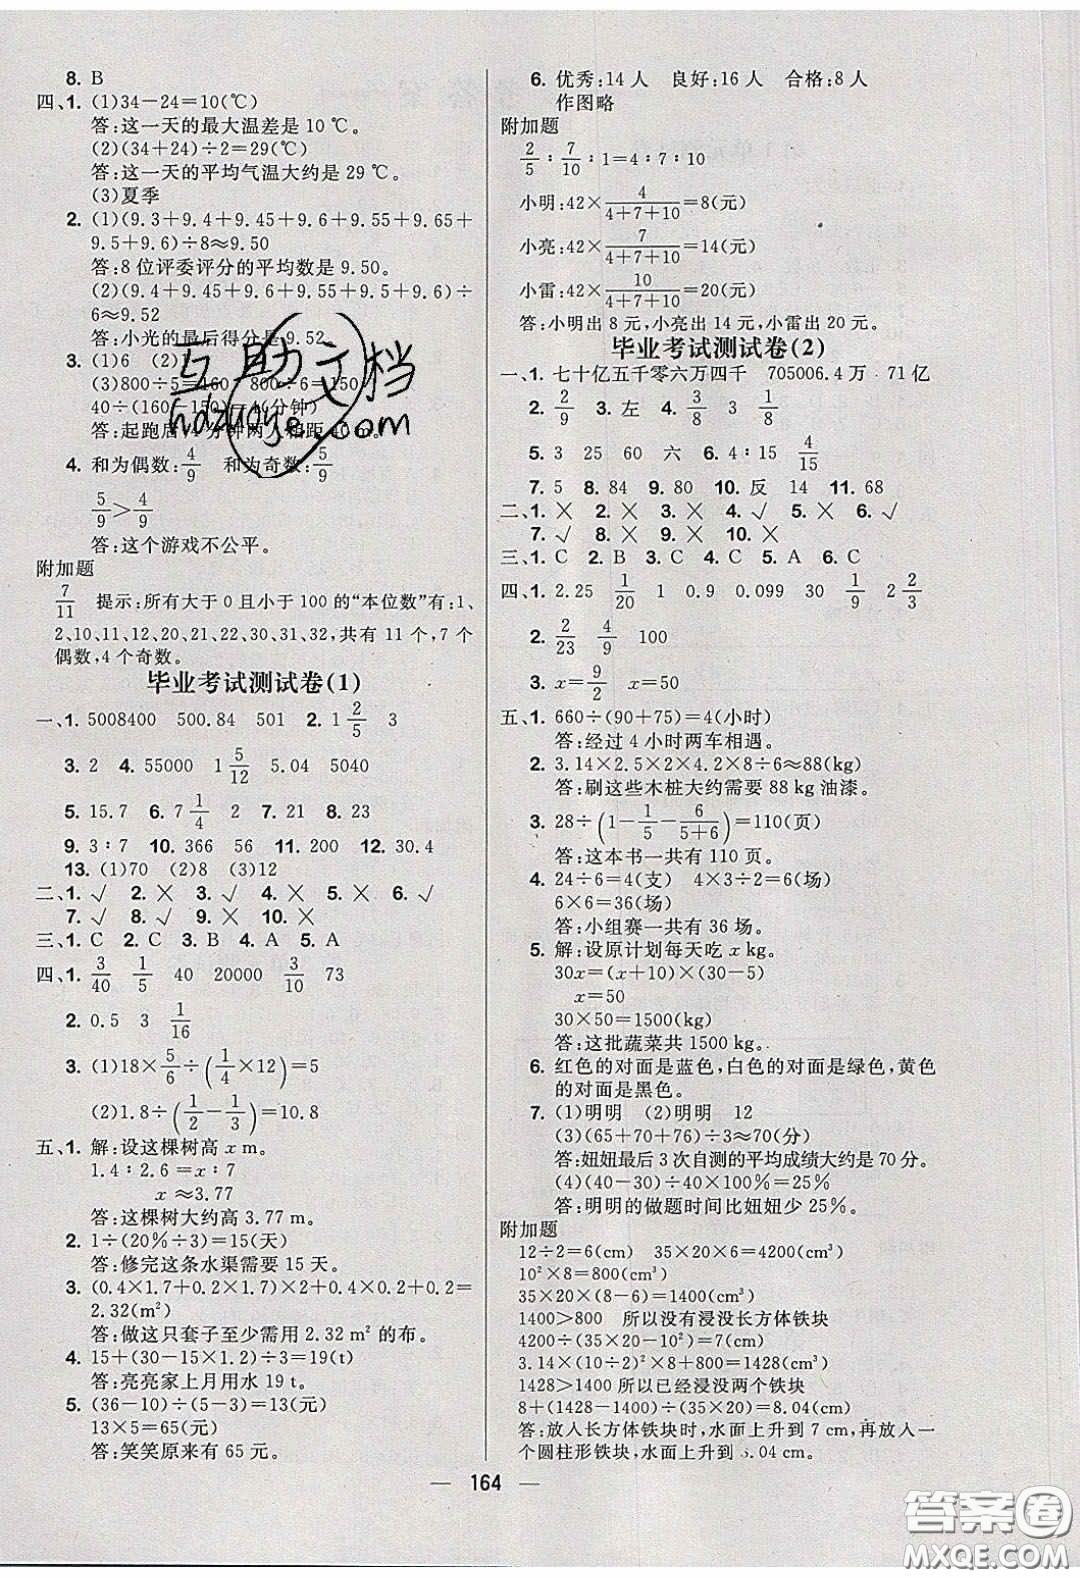 8. B
四、1. (1)34－24＝10(℃)
答:这一天的最大温差是 10 ℃。
(2)(34＋24)÷2＝29(℃)
答:这一天的平均气温大约是 29 ℃。
(3)夏季
2. (1)(9.3＋9.4＋9.45＋9.6＋9.55＋9.65＋
9.5＋9.6)÷8≈9.50
答:8 位评委评分的平均数是 9.50。
(2)(9.4＋9.45＋9.6＋9.55＋9.5＋9.6)÷
6≈9.52
答:小光的最后得分是 9.52
3. (1)6 (2)
(3)800÷5＝160 800÷
40÷(160－150)＝4(分钟)
答:起跑后 4 分钟两人相距 40 m。
4. 和为偶数:4/9 和为奇数:5/9
5/9＞4/9
答:这个游戏不公平。
附加题
7/11 提示:所有大于 0 且小于 100 的“本位数”有:1、
2、10、11、12、20、21、22、30、31、32,共有 11 个,7 个
偶数,4 个奇数。
毕业考试测试卷(1)
一、1. 5008400 500.84 501 2. 1 2/5 3
3. 2 4. 55000 1 5/12 5.04 5040
5. 15.7 6. 7 1/4 2 7. 21 8. 23
9. 3∶7 10. 366 56 11. 200 12. 30.4
13. (1)70 (2)8 (3)12
二、1. √ 2. × 3. √ 4. × 5. × 6. √
7. √ 8. √ 9. × 10. ×
三、1. C 2. C 3. B 4. A 5. A
四、1. 3/40 1/5 40 20000 3/10 73
2. 0.5 3 1/16
3. (1)18×5/6÷(1/4×12)＝5
(2)1.8÷(1/2－1/3)＝10.8
五、1. 解:设这棵树高 x m。
1.4∶2.6＝x∶7
x≈3.77
答:这棵树大约高 3.77 m。
2. 1÷(20%÷3)＝15(天)
答:修完这条水渠需要 15 天。
3. (0.4×1.7＋0.2×1.7)×2＋0.4×0.2＋0.2＝
2.32(m²)
答:做这只套子至少需用 2.32 m² 的布。
4. 15＋(30－15×1.2)÷3＝19(t)
答:亮亮家上月用水 19 t。
5. (36－10)÷(5－3)＝13(元)
13×5＝65(元)
答:笑笑原来有 65 元。
6. 优秀:14 人 良好:16 人 合格:8 人
作图略
附加题
2/5∶7/10∶1＝4∶7∶10
小明:42×4/(4＋7＋10)＝8(元)
小亮:42×7/(4＋7＋10)＝14(元)
小雷:42×10/(4＋7＋10)＝20(元)
答:小明出 8 元,小亮出 14 元,小雷出 20 元。
毕业考试测试卷(2)
一、1. 七十亿五千零六万四千 705006.4 万 71 亿
2. 2/9 3. 左 4. 3/8 3 1/8
5. 3 25 60 六 6. 4∶15 4/15
7. 5 8. 84 9. 80 10. 反 14 11. 68
二、1. × 2. × 3. × 4. √ 5. × 6. √
7. √ 8. × 9. × 10. ×
三、1. C 2. B 3. C 4. C 5. A 6. C
四、1. 2.25 1/20 1 0.9 0.099 30 1/9 2 2/3
2. 2/23 4/9 100
3. x＝9/2 x＝50
五、1. 660÷(90＋75)＝4(小时)
答:经过 4 小时两车相遇。
2. 3.14×2.5×2×4.2×8÷6≈88(kg)
答:刷这些木桩大约需要 88 kg 油漆。
3. 28÷(1－1/5－6/(5＋6))＝110(页)
答:这本书一共有 110 页。
4. 24÷6＝4(支) 4×3÷2＝6(场)
6×6＝36(场)
答:小组赛一共有 36 场。
5. 解:设原计划每天吃 x kg。
30x＝(x＋10)×(30－5)
x＝50
30×50＝1500(kg)
答:这批蔬菜共 1500 kg。
6. 红色的对面是蓝色,白色的对面是绿色,黄色
的对面是黑色。
7. (1)明明 (2)明明 12
(3)(65＋70＋76)÷3≈70(分)
答:妞妞最后 3 次自测的平均成绩大约是 70 分。
(4)(40－30)÷40×100%＝25%
答:明明的做题时间比妞妞少 25%。
附加题
12÷2＝6(cm) 35×20×6＝4200(cm³)
10²×8＝800(cm³)
35×20×(8－6)＝1400(cm³)
1400＞800 所以没有浸没长方体铁块
4200÷(35×20－10²)＝7(cm)
3.14×(10÷2)²×8＋800＝1428(cm³)
1428＞1400 所以已经浸没两个铁块
8＋(1428－1400)÷(35×20)＝8.04(cm)
答:放入长方体铁块时,水面上升到 7 cm,再放入一
个圆柱形铁块,水面上升到 8.04 cm。
— 164 —
互助文档
hdzuoye.com
答案圈
MXQE.COM